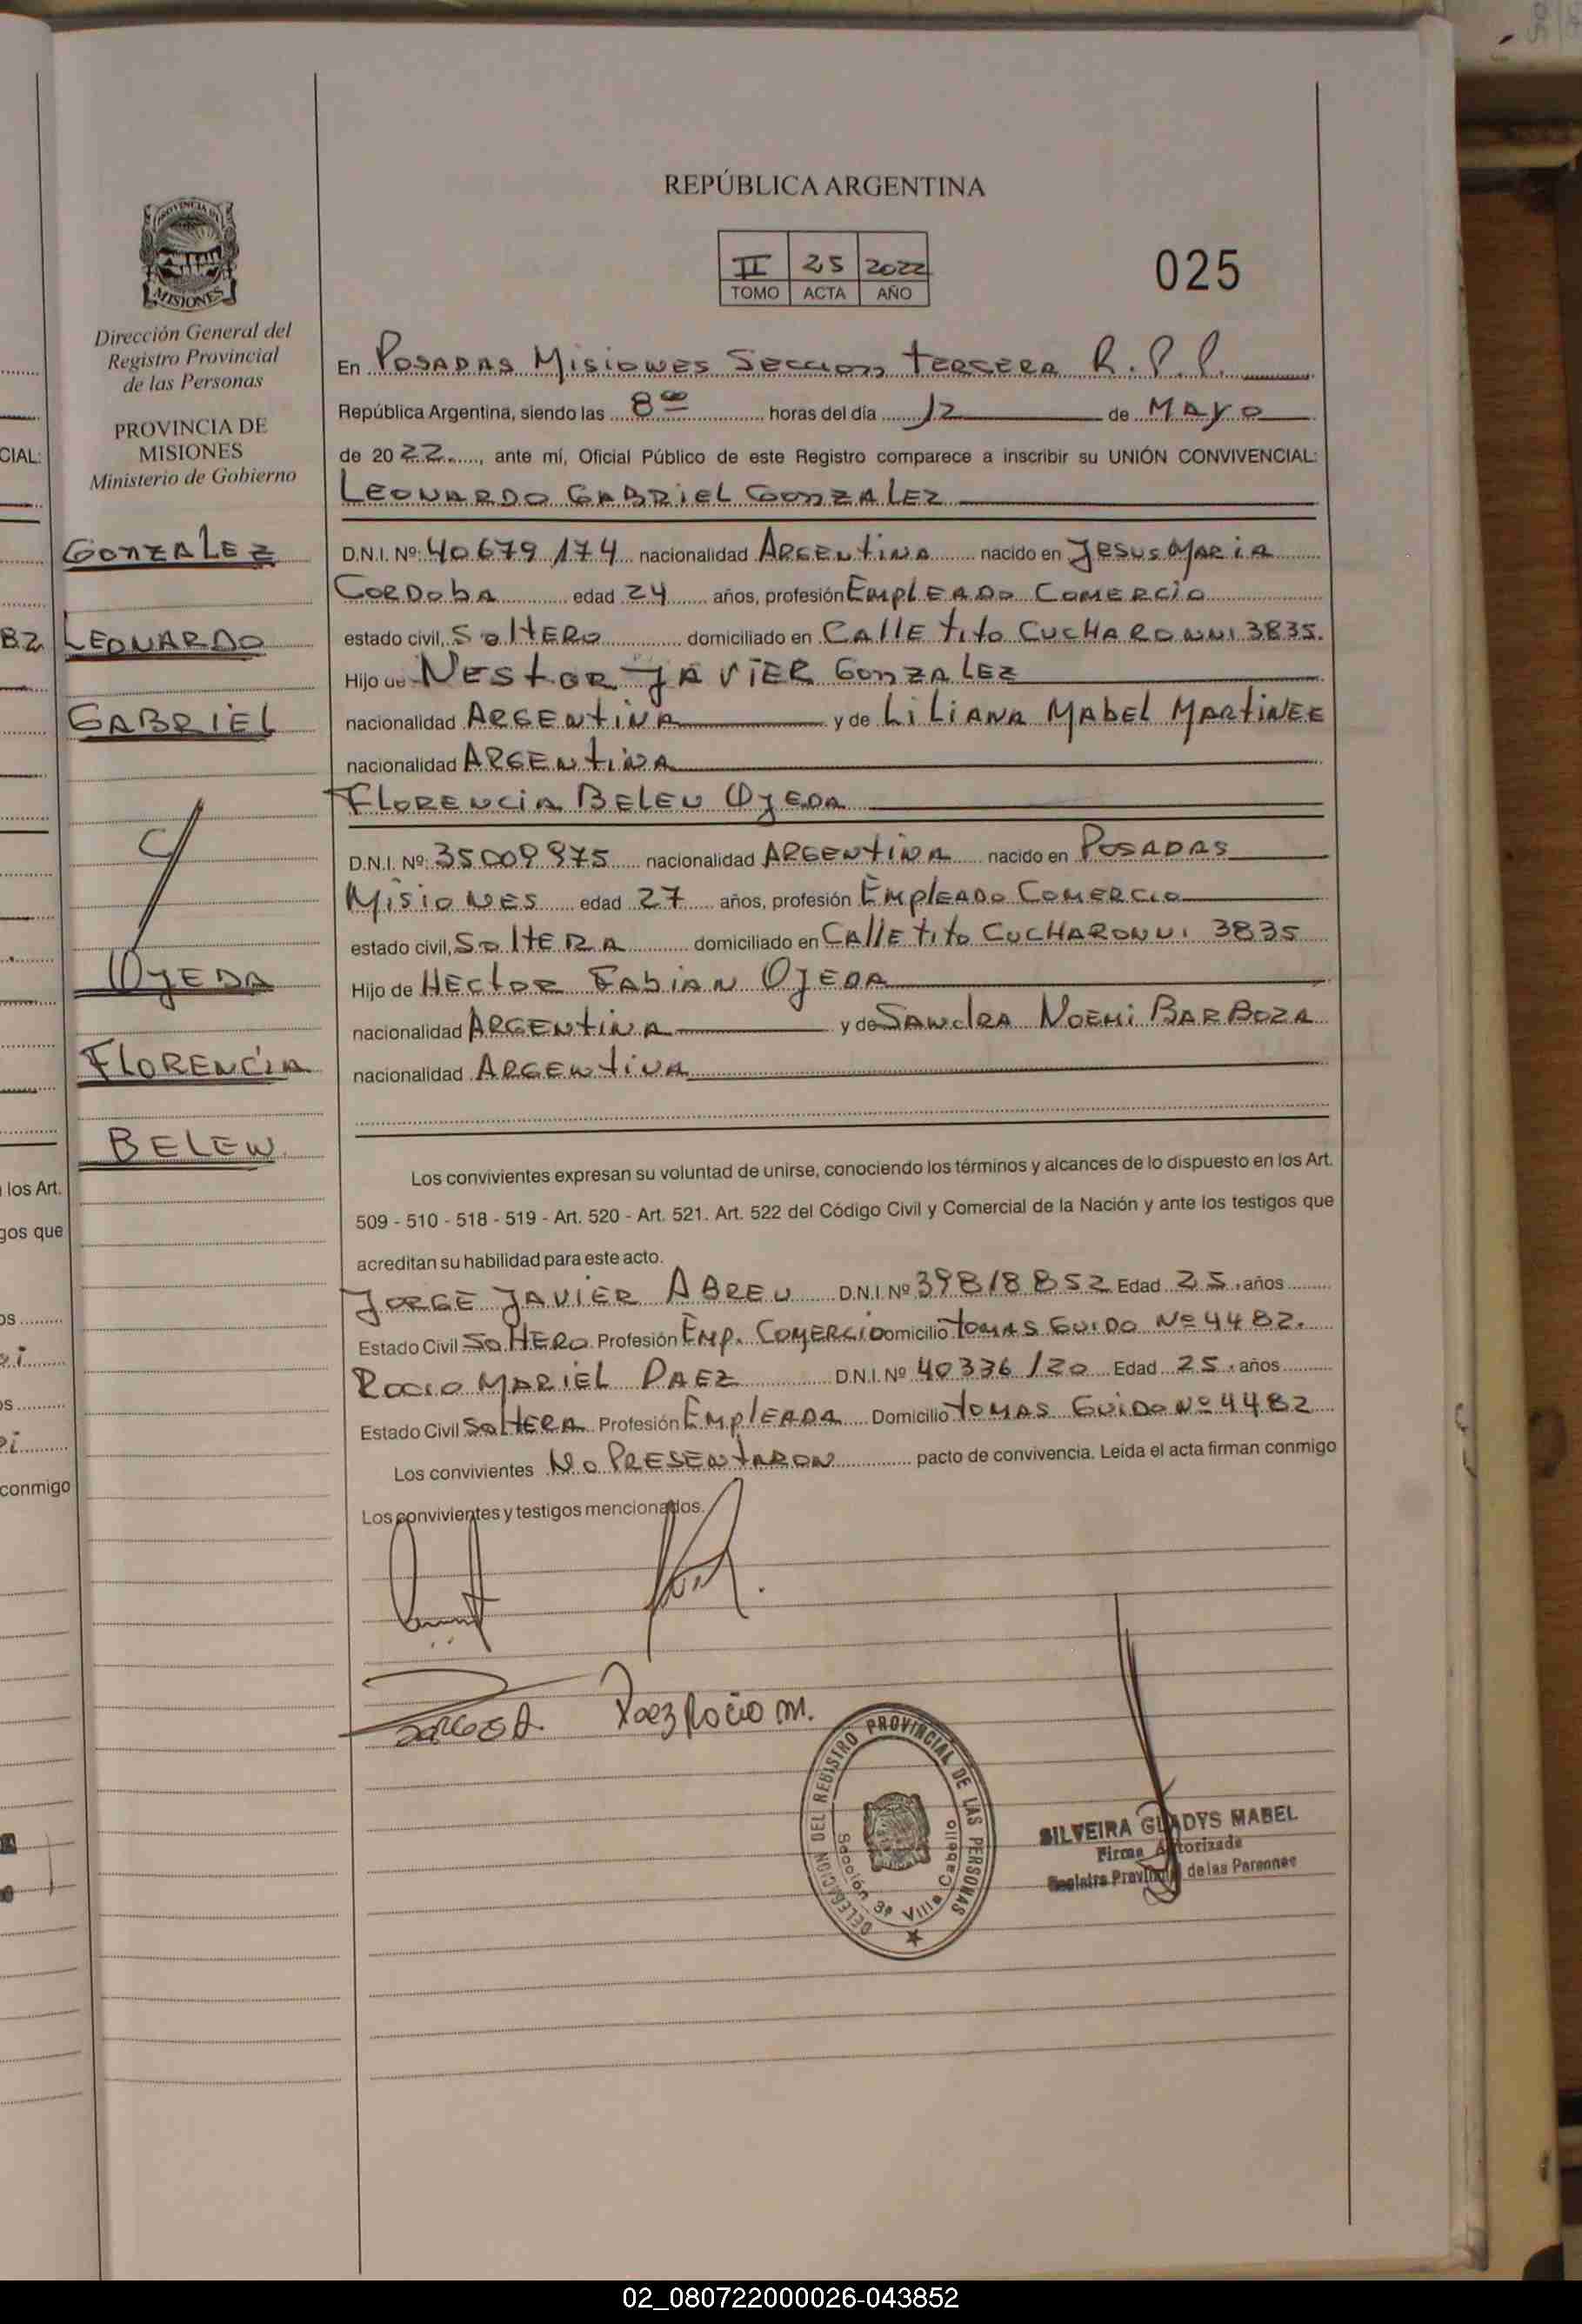 REPÚBLICA ARGENTINA
II 25 2022
TOMO ACTA AÑO
025
PROVINCIA DE
MISIONES
Dirección General del
Registro Provincial
de las Personas
PROVINCIA DE
MISIONES
Ministerio de Gobierno
GONZALEZ
LEONARDO
GABRIEL
C/
OJEDA
FLORENCIA
BELEN
En POSADAS MISIONES SECCION TERCERA R.P.P.
República Argentina, siendo las 8°° horas del día 12 de MAYO
de 20 22, ante mí, Oficial Público de este Registro comparece a inscribir su UNIÓN CONVIVENCIAL:
LEONARDO GABRIEL GONZALEZ
D.N.I. Nº: 40679174 nacionalidad ARGENTINA nacido en JESUS MARIA
CORDOBA edad 24 años, profesión EMPLEADO COMERCIO
estado civil, SOLTERO domiciliado en CALLE TITO CUCHARONNI 3835.
Hijo de NESTOR JAVIER GONZALEZ
nacionalidad ARGENTINA y de LILIANA MABEL MARTINEZ
nacionalidad ARGENTINA
FLORENCIA BELEN OJEDA
D.N.I. Nº: 35009975 nacionalidad ARGENTINA nacido en POSADAS
MISIONES edad 27 años, profesión EMPLEADO COMERCIO
estado civil, SOLTERA domiciliado en CALLE TITO CUCHARONNI 3835
Hijo de HECTOR FABIAN OJEDA
nacionalidad ARGENTINA y de SANDRA NOEMI BARBOZA
nacionalidad ARGENTINA
Los convivientes expresan su voluntad de unirse, conociendo los términos y alcances de lo dispuesto en los Art.
509 - 510 - 518 - 519 - Art. 520 - Art. 521. Art. 522 del Código Civil y Comercial de la Nación y ante los testigos que
acreditan su habilidad para este acto.
JORGE JAVIER ABREU D.N.I. Nº 39818852 Edad 25 años
Estado Civil SOLTERO Profesión EMP. COMERCIO Domicilio TOMAS GUIDO Nº 4482.
ROCIO MARIEL PAEZ D.N.I. Nº 40336120 Edad 25 años
Estado Civil SOLTERA Profesión EMPLEADA Domicilio TOMAS GUIDO Nº 4482
Los convivientes NO PRESENTARON pacto de convivencia. Leída el acta firman conmigo
Los convivientes y testigos mencionados.
Paez Rocio M.
DELEGACION DEL REGISTRO PROVINCIAL DE LAS PERSONAS
Sección 3ª Villa Cabello
SILVEIRA GLADYS MABEL
Firma Autorizada
Registro Provincial de las Personas
CIAL:
BZ
los Art.
gos que
conmigo
02_080722000026-043852